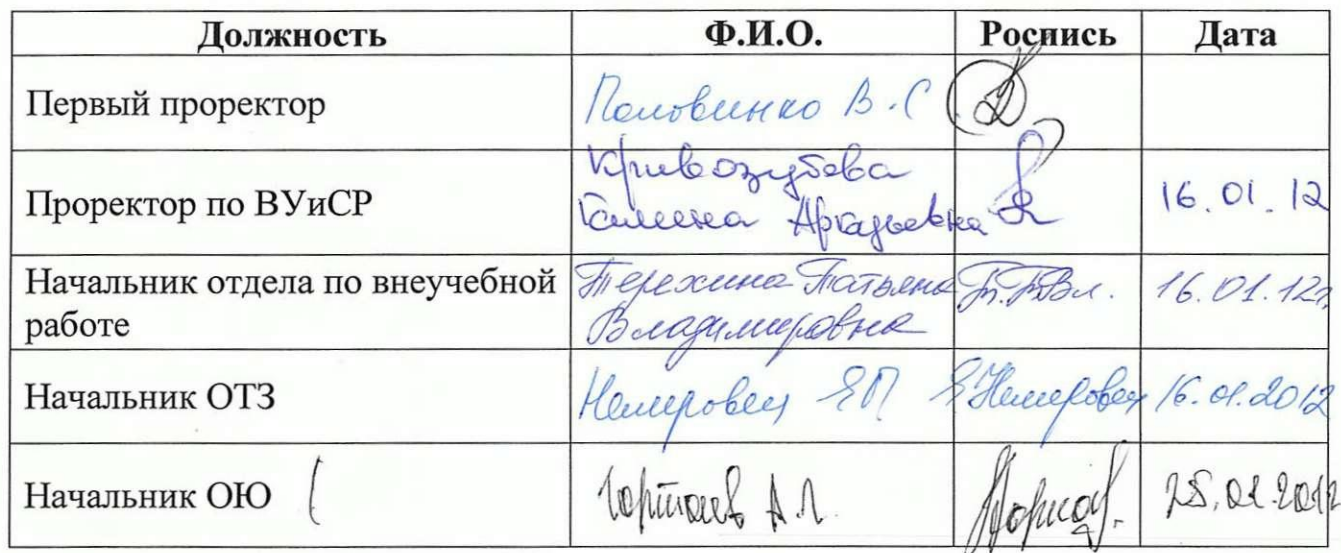 Должность Ф.И.О. Роспись Дата
Первый проректор Половинко В.С
Проректор по ВУиСР Кривозубова Галина Аркадьевна 16.01.12
Начальник отдела по внеучебной
работе Терехина Татьяна
Владимировна 16.01.12г.
Начальник ОТЗ Немировец ЯП Немеровец 16.01.2012
Начальник ОЮ А.Л. 25.01.2012